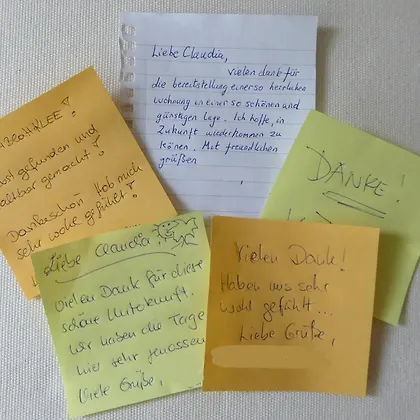 Liebe Claudia,
vielen dank für
die bereitstellung einer so herrlichen
wohnung in einer so schönen und
günstigen Lage. Ich hoffe, in
Zukunft wiederkommen zu
können. Mit freundlichen
grüßen
KLEE!
gefunden und
gemacht!
Dankeschön Hab mich
sehr wohl gefühlt!
DANKE!
Liebe Claudia
vielen Dank für diese
schöne Unterkunft.
wir haben die Tage
hier sehr genossen
Viele Grüße,
Vielen Dank!
Haben uns sehr
wohl gefühlt...
Liebe Grüße,